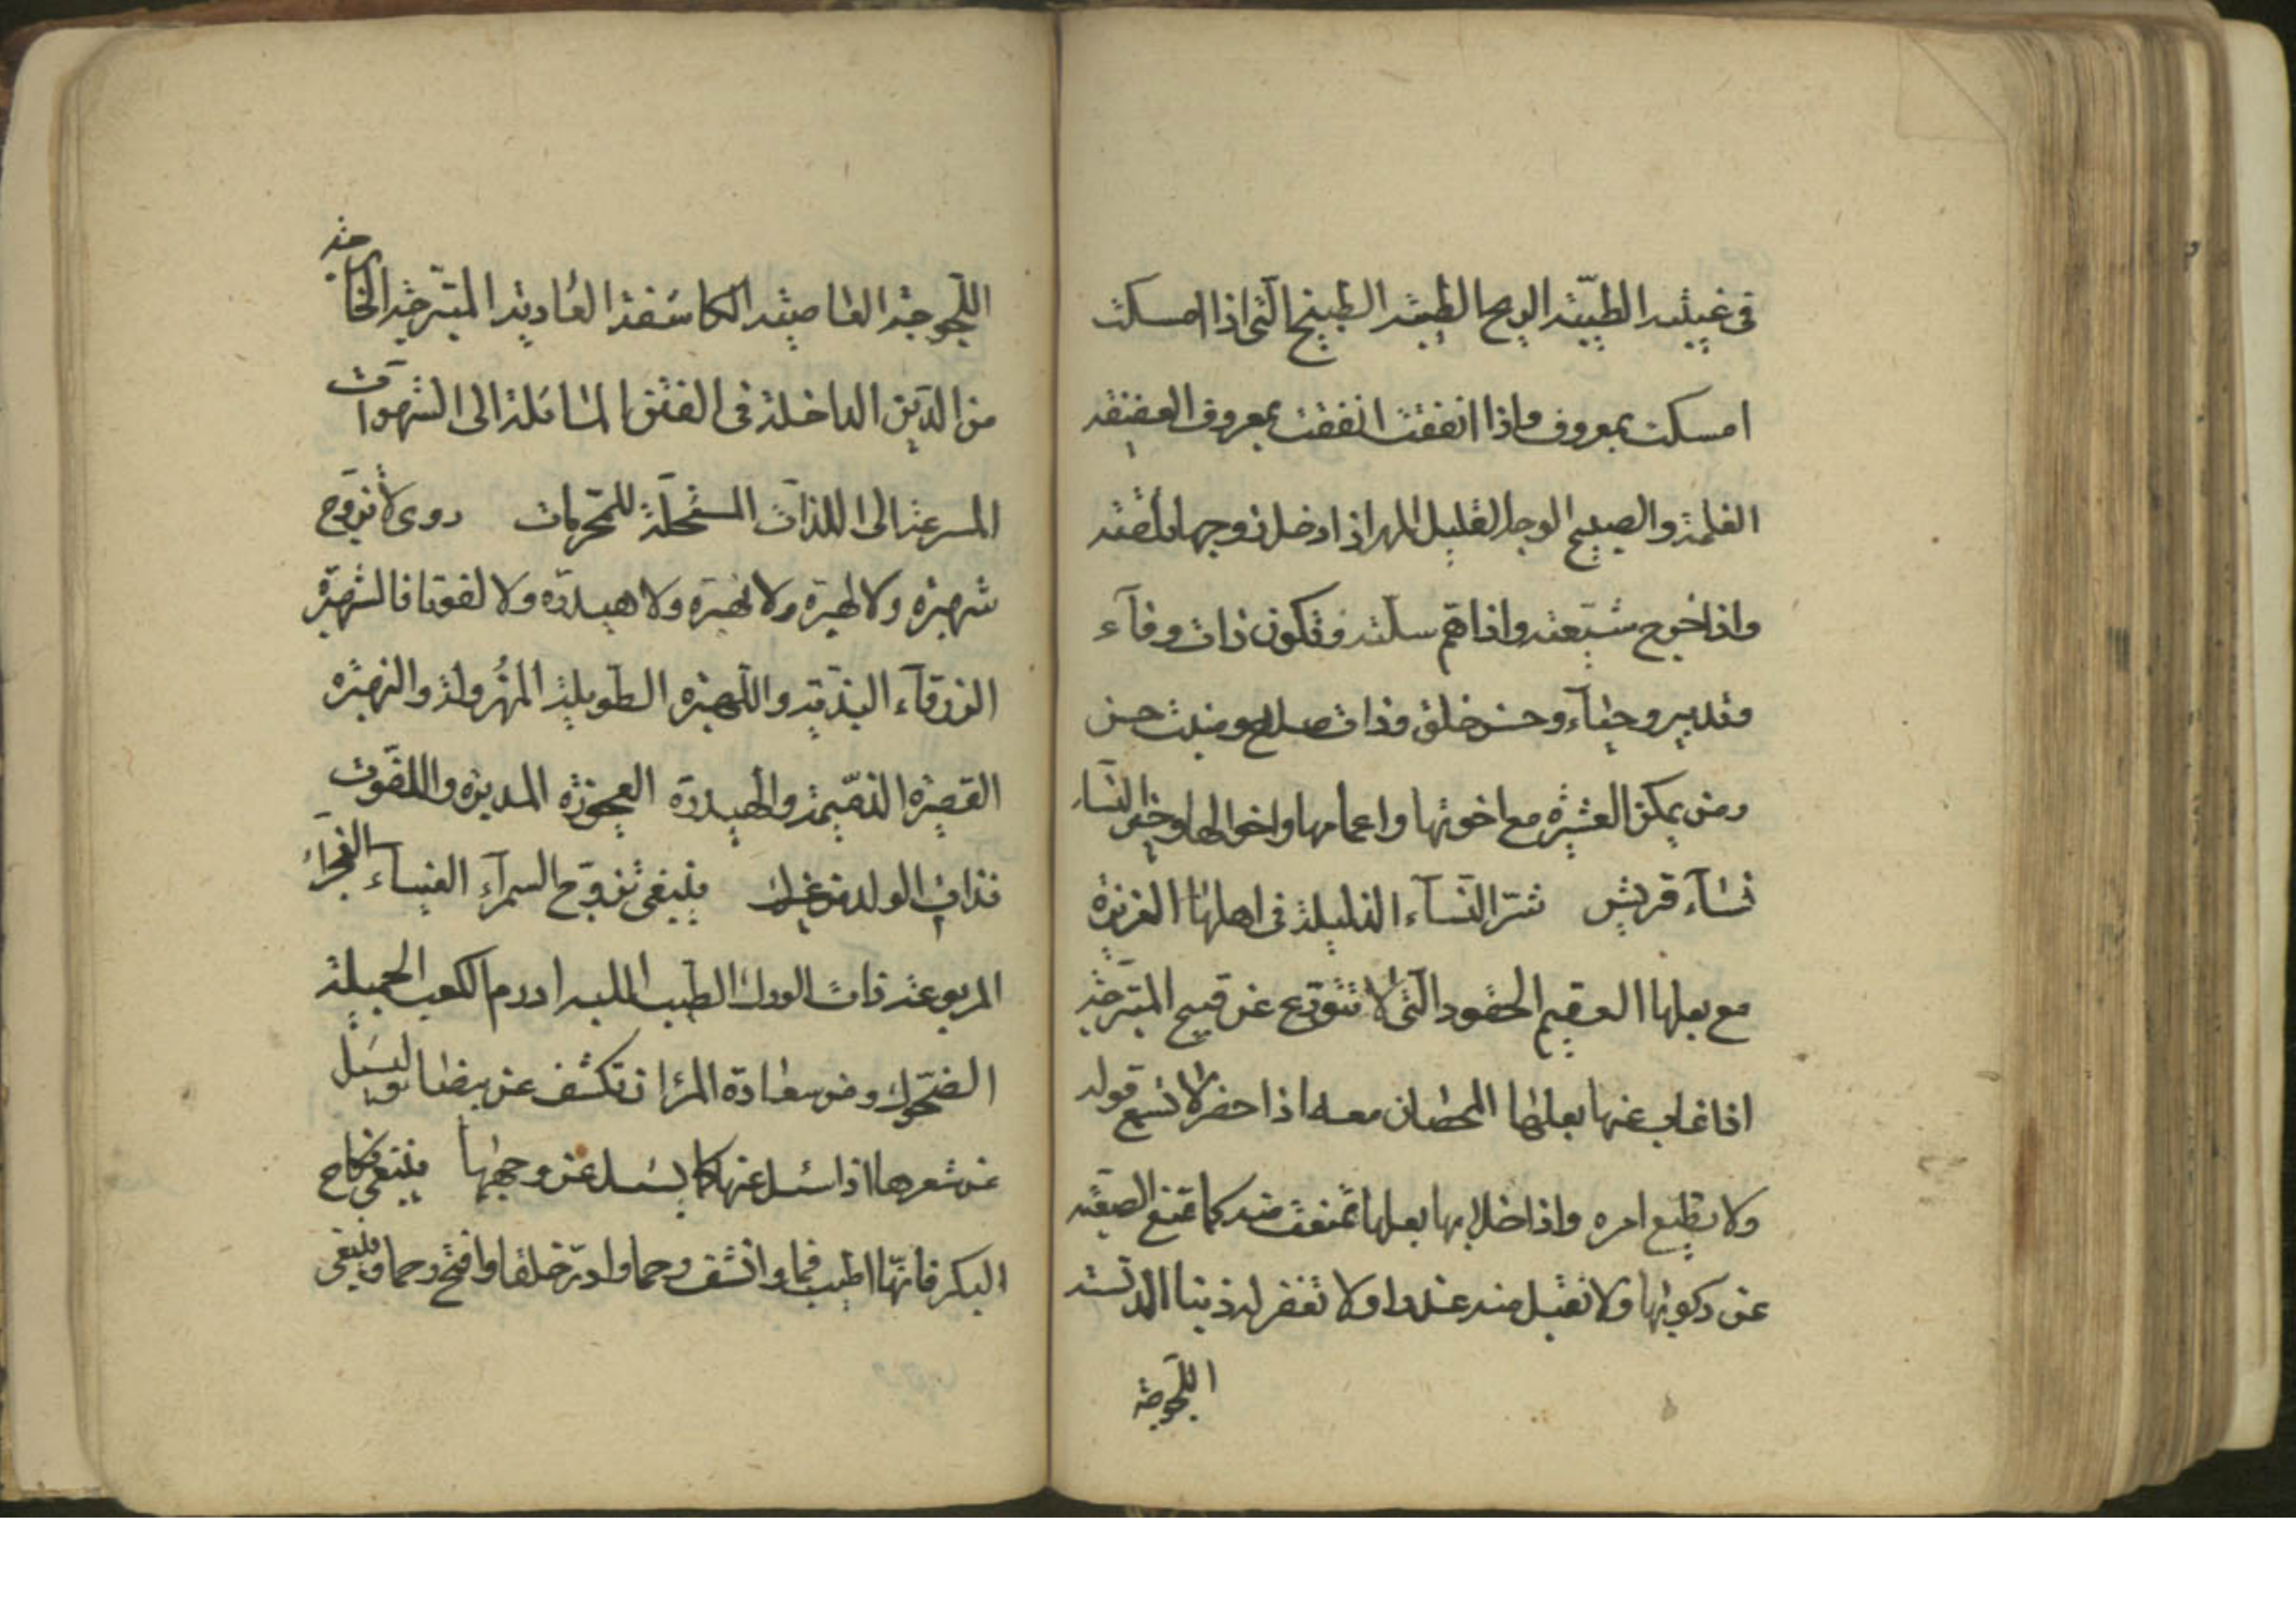 فى غيبته الطيّبة الريح الطيبة الطبيخ الّتى اذا امسكت
امسكت بمعروف واذا انفقت انفقت بمعروف العفيفه
الغلمة والصبيح الوجه القليل المهر اذا دخل زوجها
واذا خرج شيّعته واذا اهتم سلّته وتكون ذات وفآء
وتدبير وحيآء وحسن خلق وذات صلاح ومنبت حسن
ومن يمكن العشيرة مع اخوتها واعمامها واخوالها وخير النسآء
نسآء قريش شرّ النّسآء الذليلة فى اهلها العزيزة
مع بعلها العقيم الحقود الّتى لا تتورّع عن قبيح المتبرّجة
اذا غاب عنها بعلها الحصان معه اذا حضر لا تسمع قوله
ولا تطيع امره واذا خلا بها بعلها تمنعت منه كما تمنع الصعبة
عن ركوبها ولا تقبل منه عذرا ولا تغفر له ذنبا الدنسة
اللّجوجة
اللّجوجة العاصية الكاسفة العارية المتبرّجة الخارجة
من الدّين الداخلة فى الفتن المائلة الى الشهوات
المسرعة الى اللذات المستحلّة للمحرّمات روى لا تتزوّج
شهبرة ولا لهبرة ولا نهبرة ولا هيدرة ولا لفوتا فالشهبرة
الزرقآء البذيّة واللّهبرة الطويلة المهزولة والنهبرة
القصيرة الذميمة والهيدرة العجوزة المدبرة واللفوت
ذات الولد من غيرك ينبغى تزويج السمرآء العيناء العجزآء
المربوعة ذات الورك الطيب الليه ادرم الكعب الجميلة
الضحوك ومن سعادة المرء ان تكشف عن بيضا وليسئل
عن شعرها اذا سئل عنها كما يسئل عن وجهها ينبغى نكاح
البكر فانّها اطيب فما وانشف رحما وادرّ خلفا وافتح رحما وينبغى